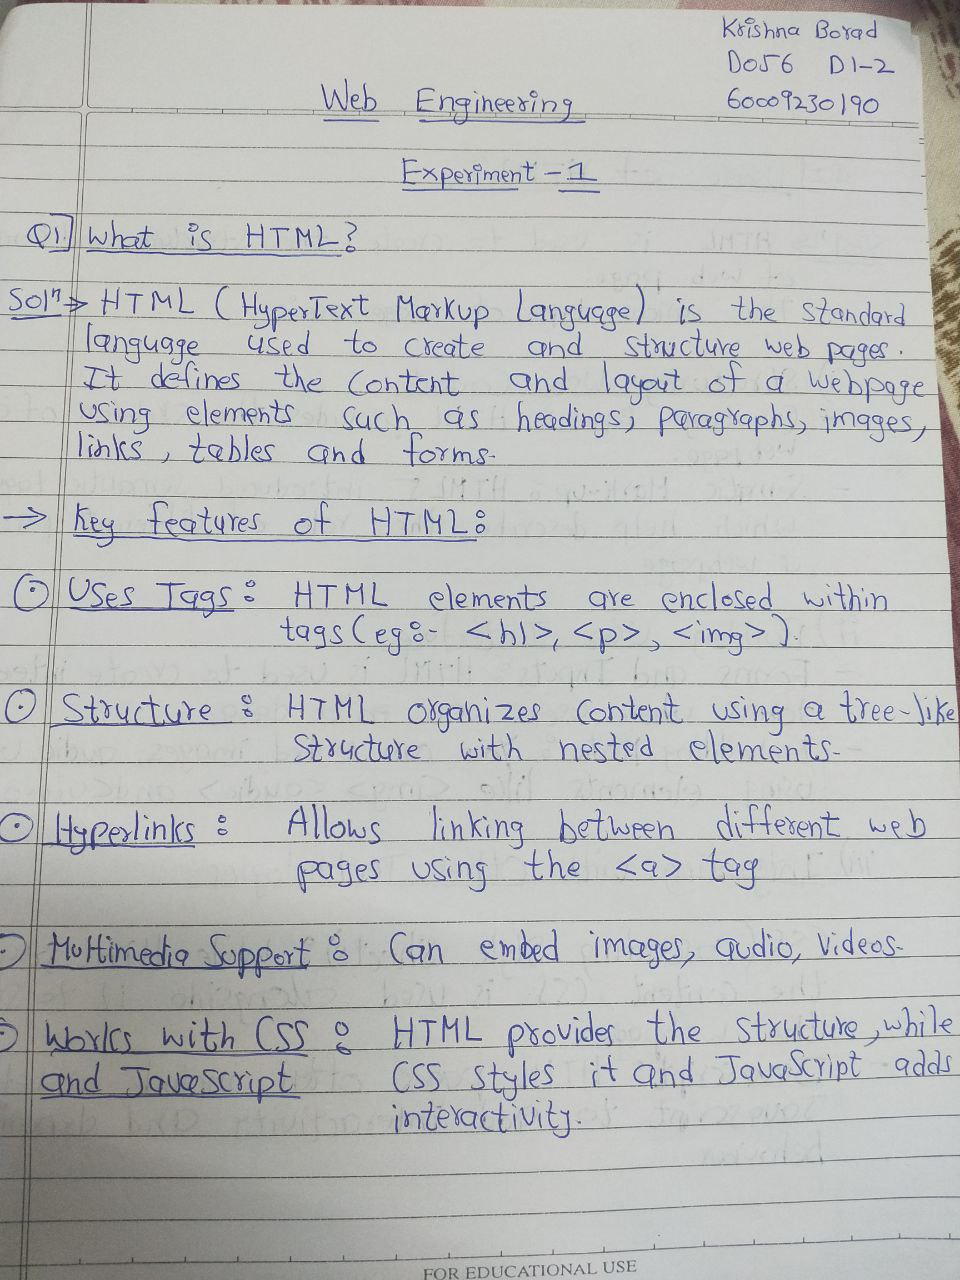 Krishna Borad
D056 D1-2
60009230190
Web Engineering
Experiment - 1
Q1.] What is HTML?
Solⁿ → HTML (HyperText Markup Language) is the standard
language used to create and structure web pages.
It defines the content and layout of a webpage
using elements such as headings, paragraphs, images,
links, tables and forms.
→ Key features of HTML:
⊙ Uses Tags: HTML elements are enclosed within
tags (eg:- <h1>, <p>, <img>).
⊙ Structure: HTML organizes content using a tree-like
structure with nested elements.
⊙ Hyperlinks: Allows linking between different web
pages using the <a> tag
⊙ Multimedia Support: Can embed images, audio, videos.
⊙ Works with CSS : HTML provides the structure, while
and JavaScript CSS styles it and JavaScript adds
interactivity.
FOR EDUCATIONAL USE